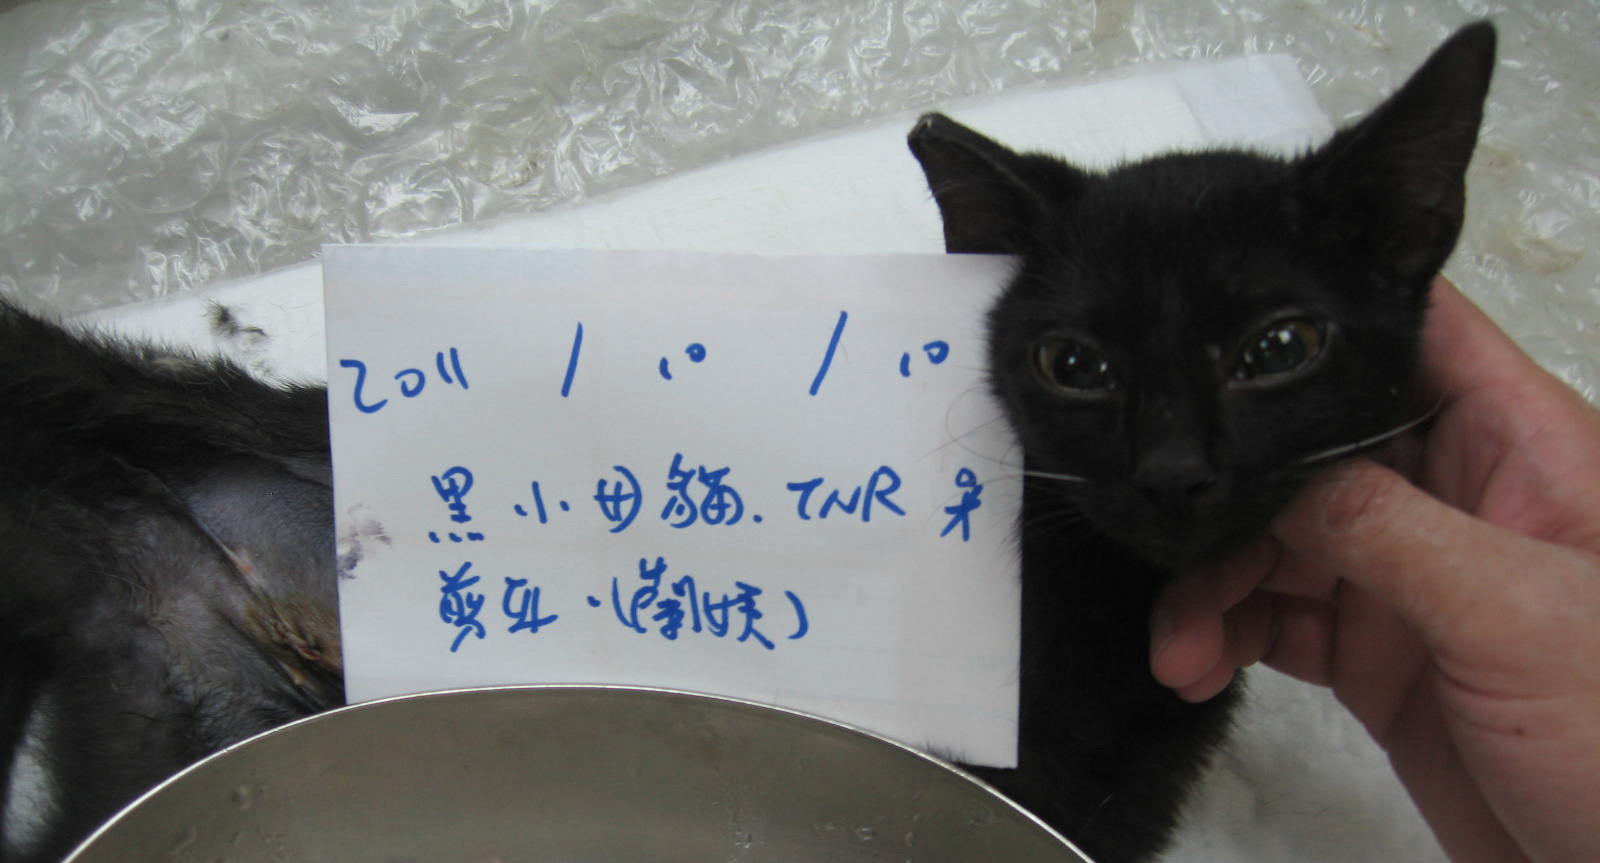 2011 / 10 / 10
黑小母貓. TNR 未
剪耳.(蘭嫂)